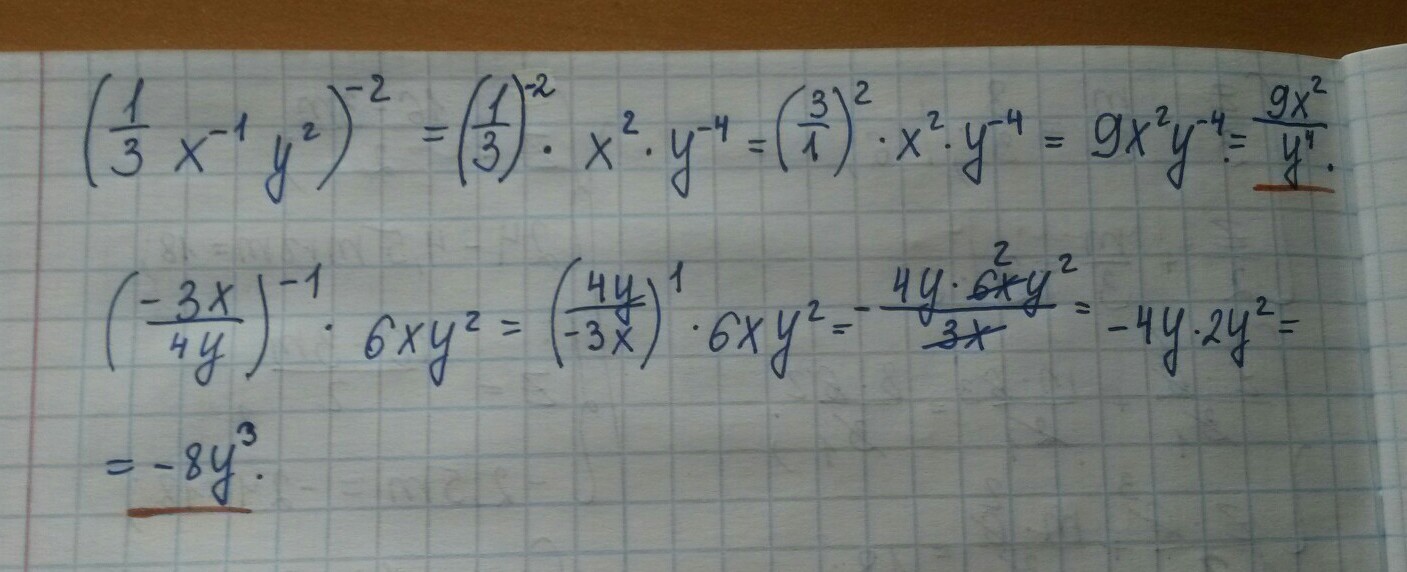 (1/3 x⁻¹ y²)⁻² = (1/3)⁻² · x² · y⁻⁴ = (3/1)² · x² · y⁻⁴ = 9x²y⁻⁴ = 9x²/y⁴.
(-3x/4y)⁻¹ · 6xy² = (4y/-3x)¹ · 6xy² = - 4y · 6x 2 y²/3x = -4y · 2y² =
= -8y³.